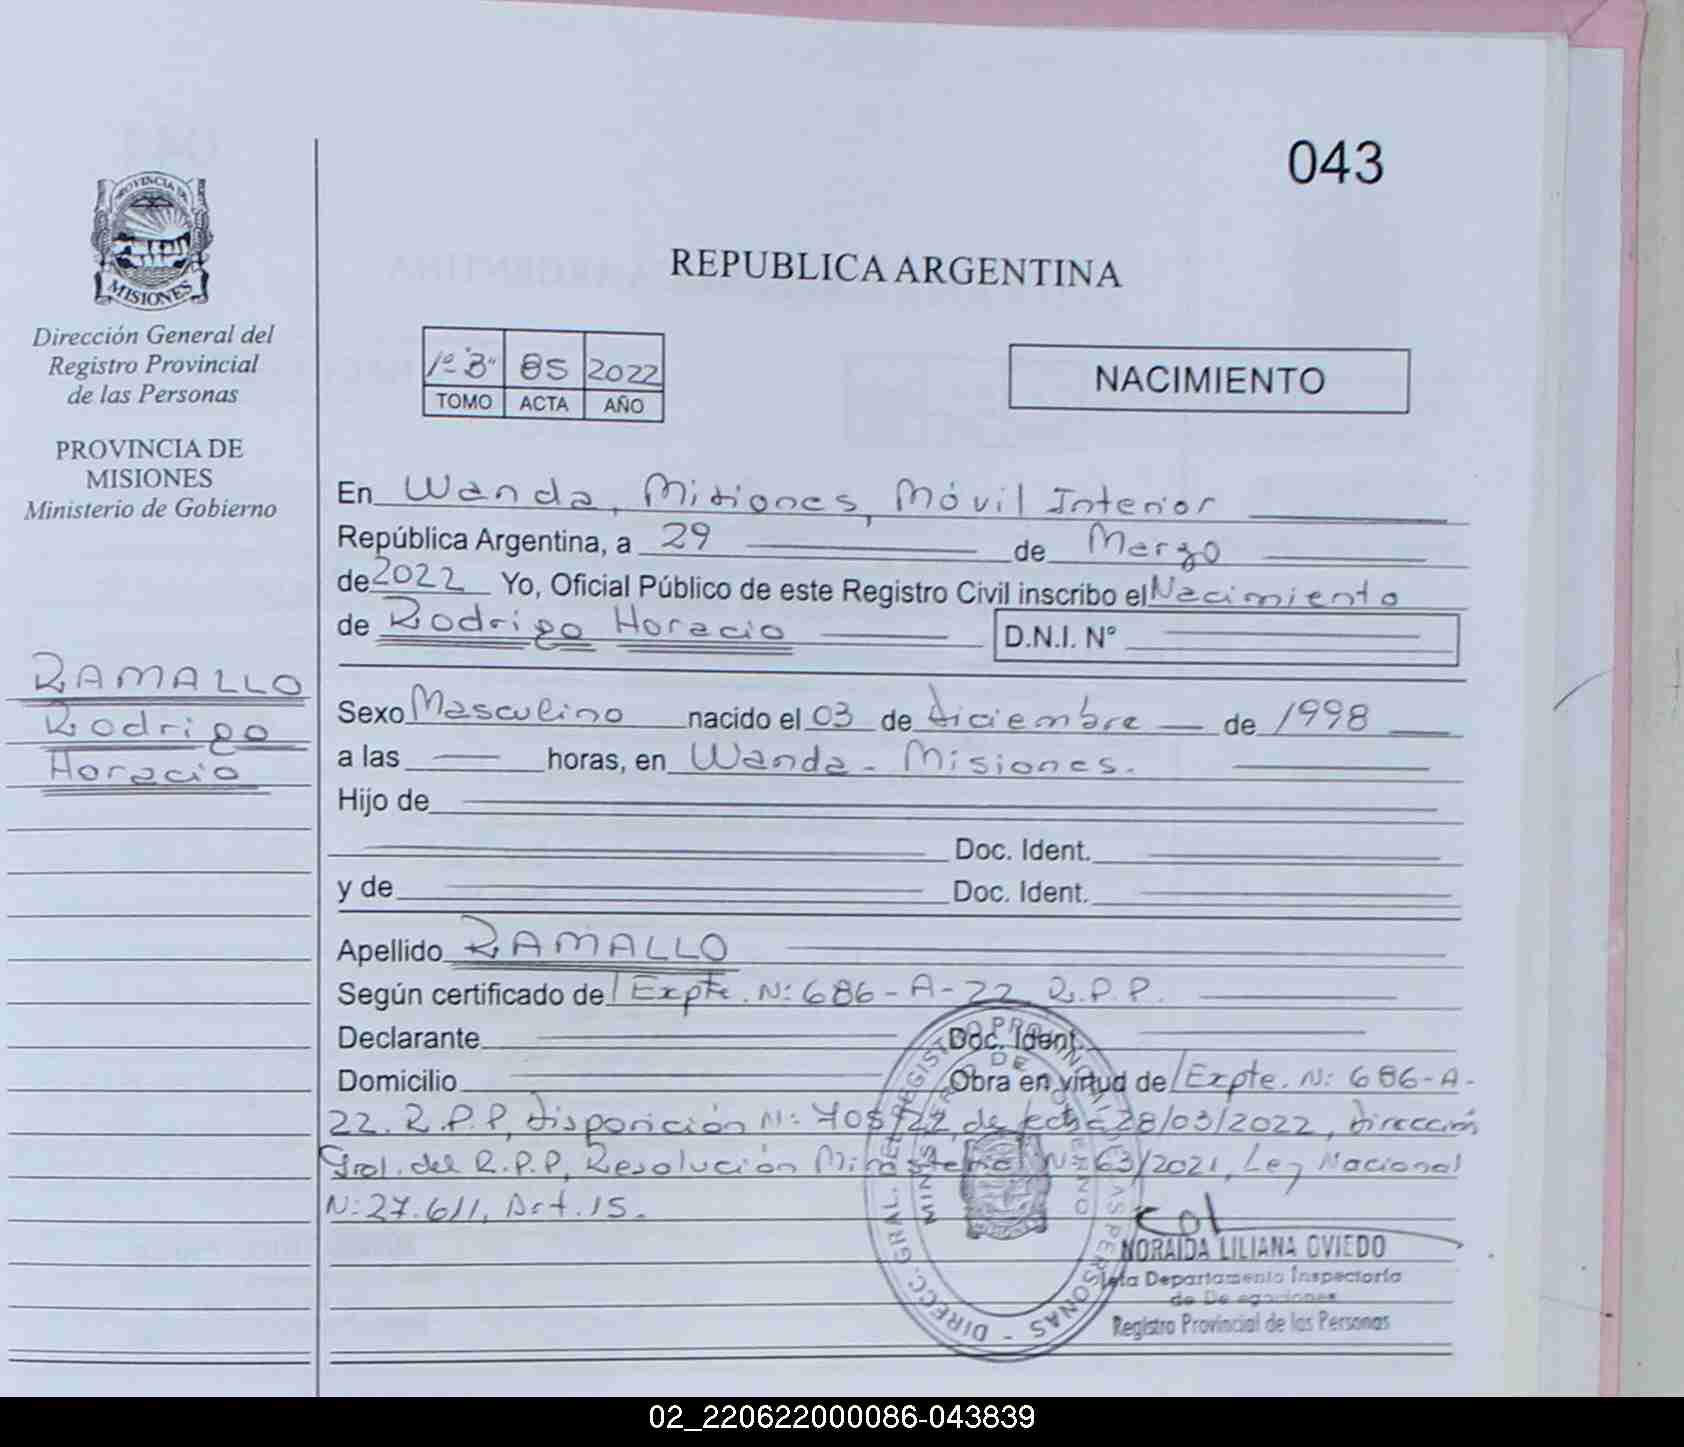 043
PROVINCIA DE
MISIONES
Dirección General del
Registro Provincial
de las Personas
PROVINCIA DE
MISIONES
Ministerio de Gobierno
RAMALLO
Rodrigo
Horacio
REPUBLICA ARGENTINA
1º "B" 85 2022
TOMO ACTA AÑO
NACIMIENTO
En Wanda, Misiones, Móvil Interior
República Argentina, a 29 de Marzo
de 2022 Yo, Oficial Público de este Registro Civil inscribo el Nacimiento
de Rodrigo Horacio D.N.I. Nº
Sexo Masculino nacido el 03 de diciembre de 1998
a las horas, en Wanda - Misiones.
Hijo de
Doc. Ident.
y de Doc. Ident.
Apellido RAMALLO
Según certificado de Expte. N: 686-A-22 R.P.P.
Declarante Doc. Ident.
Domicilio Obra en virtud de Expte. N: 686-A-
22. R.P.P, disposición N: 705/22, de fecha 28/03/2022, dirección
Gral. del R.P.P, Resolución Ministerial N: 63/2021, Ley Nacional
N: 27.611, Art. 15.
DIRECC. GRAL. DEL REGISTRO PROVINCIAL DE LAS PERSONAS -
MINISTERIO DE GOBIERNO
NORAIDA LILIANA OVIEDO
Jefa Departamento Inspectoría
de Delegaciones
Registro Provincial de las Personas
02_220622000086-043839